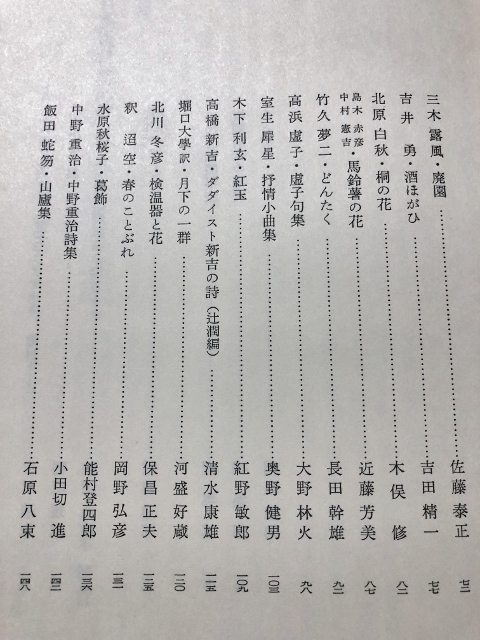 三木露風・廃園……佐藤泰正 七二
吉井 勇・酒ほがひ……吉田精一 七七
北原白秋・桐の花……木俣 修 八二
島木赤彦 中村憲吉・馬鈴薯の花……近藤芳美 八七
竹久夢二・どんたく……長田幹雄 九二
高浜虚子・虚子句集……大野林火 九八
室生犀星・抒情小曲集……奥野健男 一〇三
木下利玄・紅玉……紅野敏郎 一〇九
高橋新吉・ダダイスト新吉の詩(辻潤編)……清水康雄 一一五
堀口大學訳・月下の一群……河盛好蔵 一二〇
北川冬彦・検温器と花……保昌正夫 一二五
釈 迢空・春のことぶれ……岡野弘彦 一三一
水原秋桜子・葛飾……能村登四郎 一三六
中野重治・中野重治詩集……小田切 進 一四二
飯田蛇笏・山廬集……石原八束 一四八